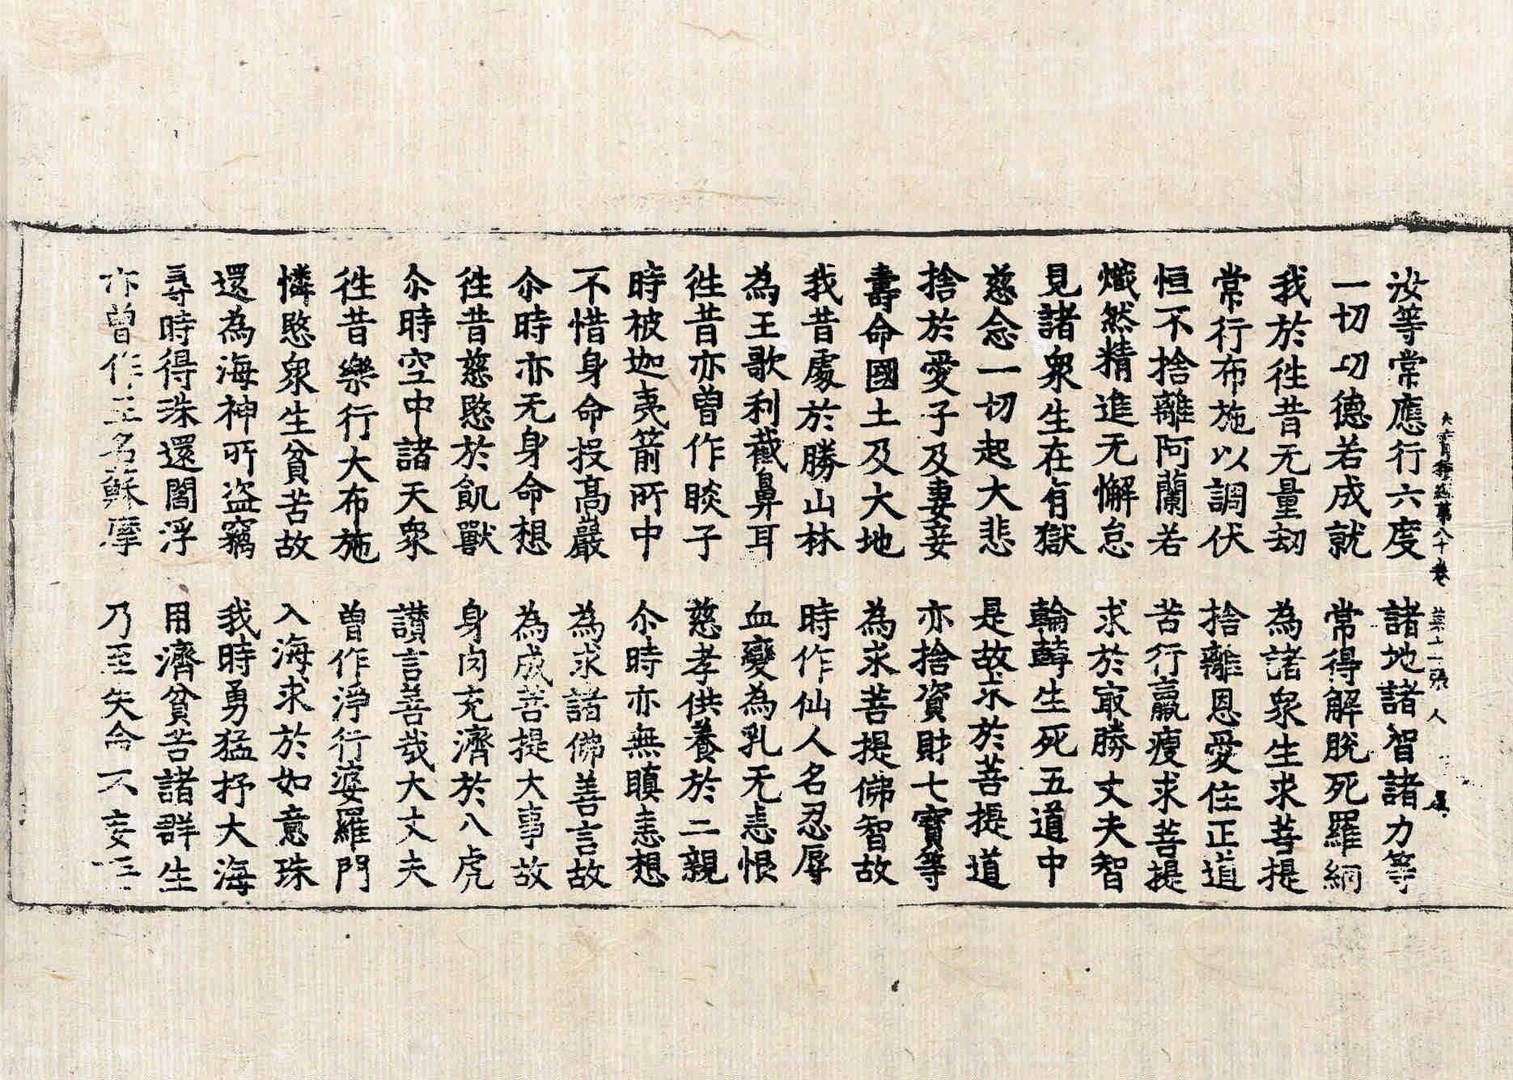 汝等常應行六度　諸地諸智諸力等
一切功德若成就　常得解脫死羅網
大寶積經第八十卷　第十一張　人
我於往昔无量劫　為諸衆生求菩提
常行布施以調伏　捨離恩愛住正道
恒不捨離阿蘭若　苦行羸瘦求菩提
熾然精進无懈怠　求於㝡勝丈夫智
見諸衆生在有獄　輪轉生死五道中
慈念一切起大悲　是故求於菩提道
捨於愛子及妻妾　亦捨資財七寶等
壽命國土及大地　為求菩提佛智故
我昔處於勝山林　時作仙人名忍辱
為王歌利截鼻耳　血變為乳无恚恨
往昔亦曾作睒子　慈孝供養於二親
時被迦夷箭所中　尒時亦無瞋恚想
不惜身命投高巖　為求諸佛善言故
尒時亦无身命想　為成菩提大事故
往昔慈愍於飢獸　身肉充濟於八虎
尒時空中諸天衆　讃言善哉大丈夫
往昔樂行大布施　曾作淨行婆羅門
憐愍衆生貧苦故　入海求於如意珠
還為海神所盜竊　我時勇猛抒大海
尋時得珠還閻浮　用濟貧苦諸群生
亦曾作王名蘇摩　乃至失命不妄